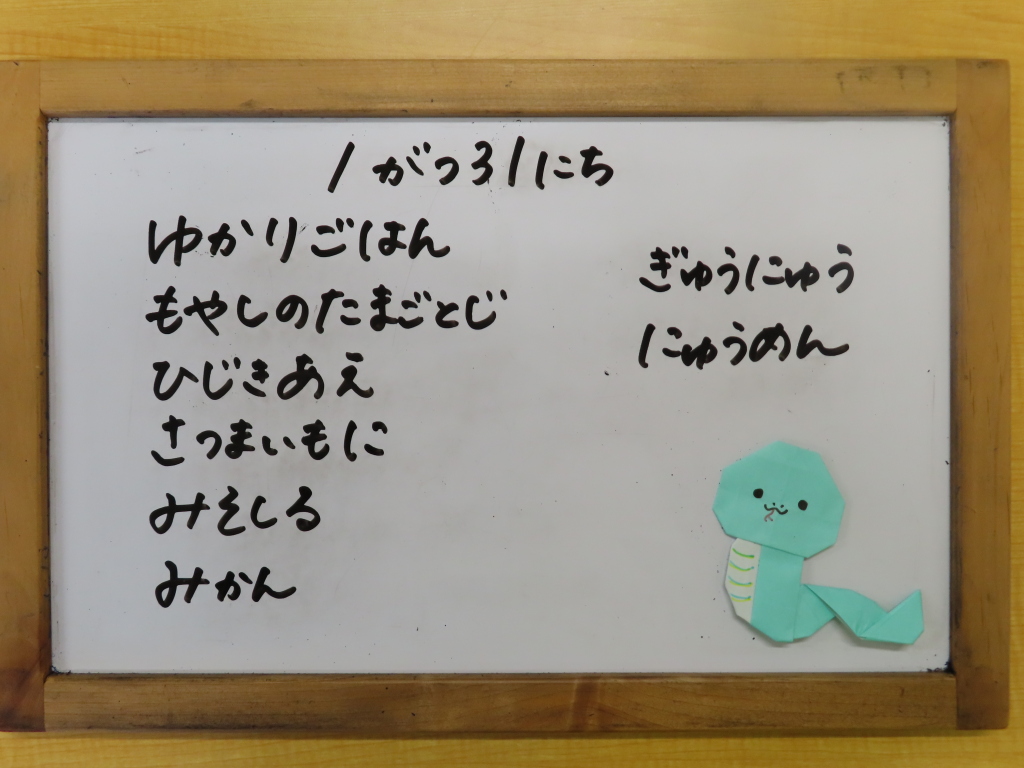 1がつ31にち
ゆかりごはん
もやしのたまごとじ
ひじきあえ
さつまいもに
みそしる
みかん
ぎゅうにゅう
にゅうめん